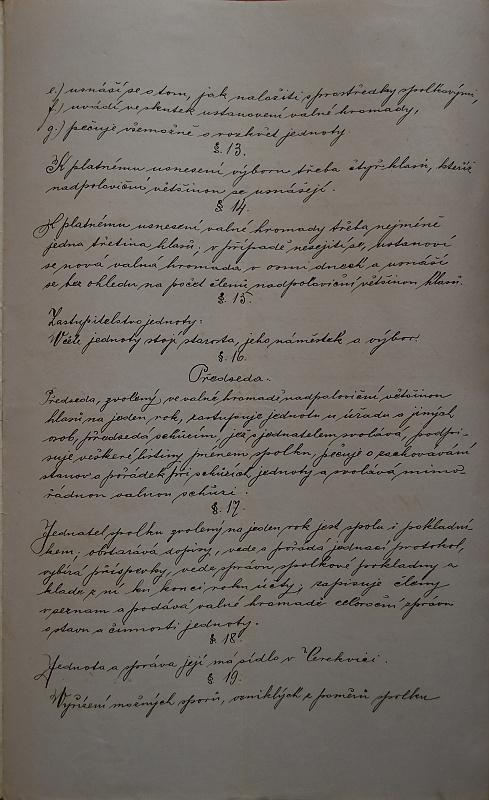 e.) usnáší se o tom, jak naložiti s prostředky spolkovými,
f.) uvádí ve skutek ustanovení valné hromady,
g.) pečuje všemožně o rozkvět jednoty
§. 13.
K platnému usnesení výboru třeba čtyř hlasů, kteříž
nadpoloviční většinou se usnášejí.
§. 14.
K platnému usnesení valné hromady třeba nejméně
jedna třetina hlasů; v případě nesejití se, ustanoví
se nová valná hromada v osmi dnech a usnáší
se bez ohledu na počet členů nadpoloviční většinou hlasů.
§. 15.
Zastupitelstvo jednoty:
V čele jednoty stojí starosta, jeho náměstek a výbor.
§. 16.
Předseda.
Předseda, zvolený ve valné hromadě nadpoloviční většinou
hlasů na jeden rok, zastupuje jednotu u úřadů a jiných
osob, předsedá schůzím, jež s jednatelem svolává, podpi-
suje veškeré listiny jménem spolku, pečuje o zachovávání
stanov a pořádek při schůzích jednoty a svolává mimo-
řádnou valnou schůzi.
§. 17.
Jednatel spolku zvolený na jeden rok jest spolu i pokladní-
kem; obstarává dopisy, vede a pořádá jednací protokol,
vybírá příspěvky, vede správu spolkové pokladny a
klade z ní ku konci roku účty; zapisuje členy
v seznam a podává valné hromadě celoroční zprávu
o stavu a činnosti jednoty.
§. 18.
Jednota a správa její má sídlo v Cerekvici.
§. 19.
Vyřízení možných sporů, vzniklých z poměrů spolku